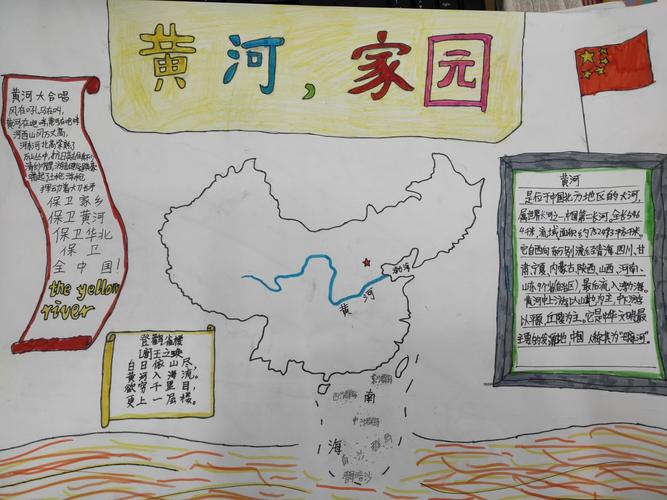 黄河，家园
黄河大合唱
风在吼，马在叫，
黄河在咆哮，黄河在咆哮
河西山冈万丈高，
河东河北高粱熟了
万山丛中，抗日英雄真不少
保卫家乡
保卫黄河
保卫华北
保卫
全中国！
the yellow
river
登鹳雀楼
唐 王之涣
白日依山尽，
黄河入海流。
欲穷千里目，
更上一层楼。
渤海
黄河
南
海
黄河
是位于中国北方地区的大河，
属世界长河之一，中国第二长河，全长546
4千米，流域面积约752443平方千米。
它自西向东分别流经青海、四川、甘
肃、宁夏、内蒙古、陕西、山西、河南、
山东9个省(自治区)，最后流入渤海。
黄河中上游以山地为主，中下游
以平原、丘陵为主。它是中华文明最
主要的发源地，中国人称其为"母亲河"。